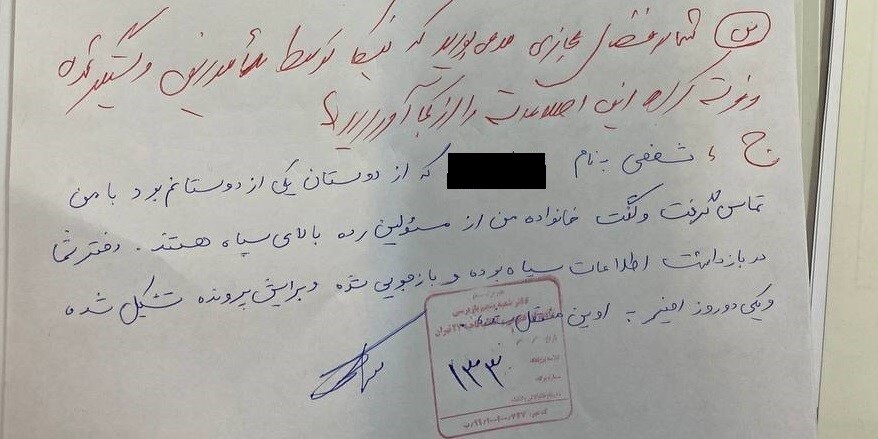 س) شما در فضای مجازی مدعی بودید که نیکا توسط مأمورین دستگیر شده
و فوت کرده این اطلاعات را از کجا آوردید؟
ج ؛ شخصی به نام که از دوستان یکی از دوستانم بود با من
تماس گرفت و گفت خانواده من از مسئولین رده بالای سپاه هستند. دختر شما
در بازداشت اطلاعات سپاه بوده و بازجویی شده و برایش پرونده تشکیل شده
و یکی دو روز اخیر به اوین منتقل شده.
۱۳۳۰